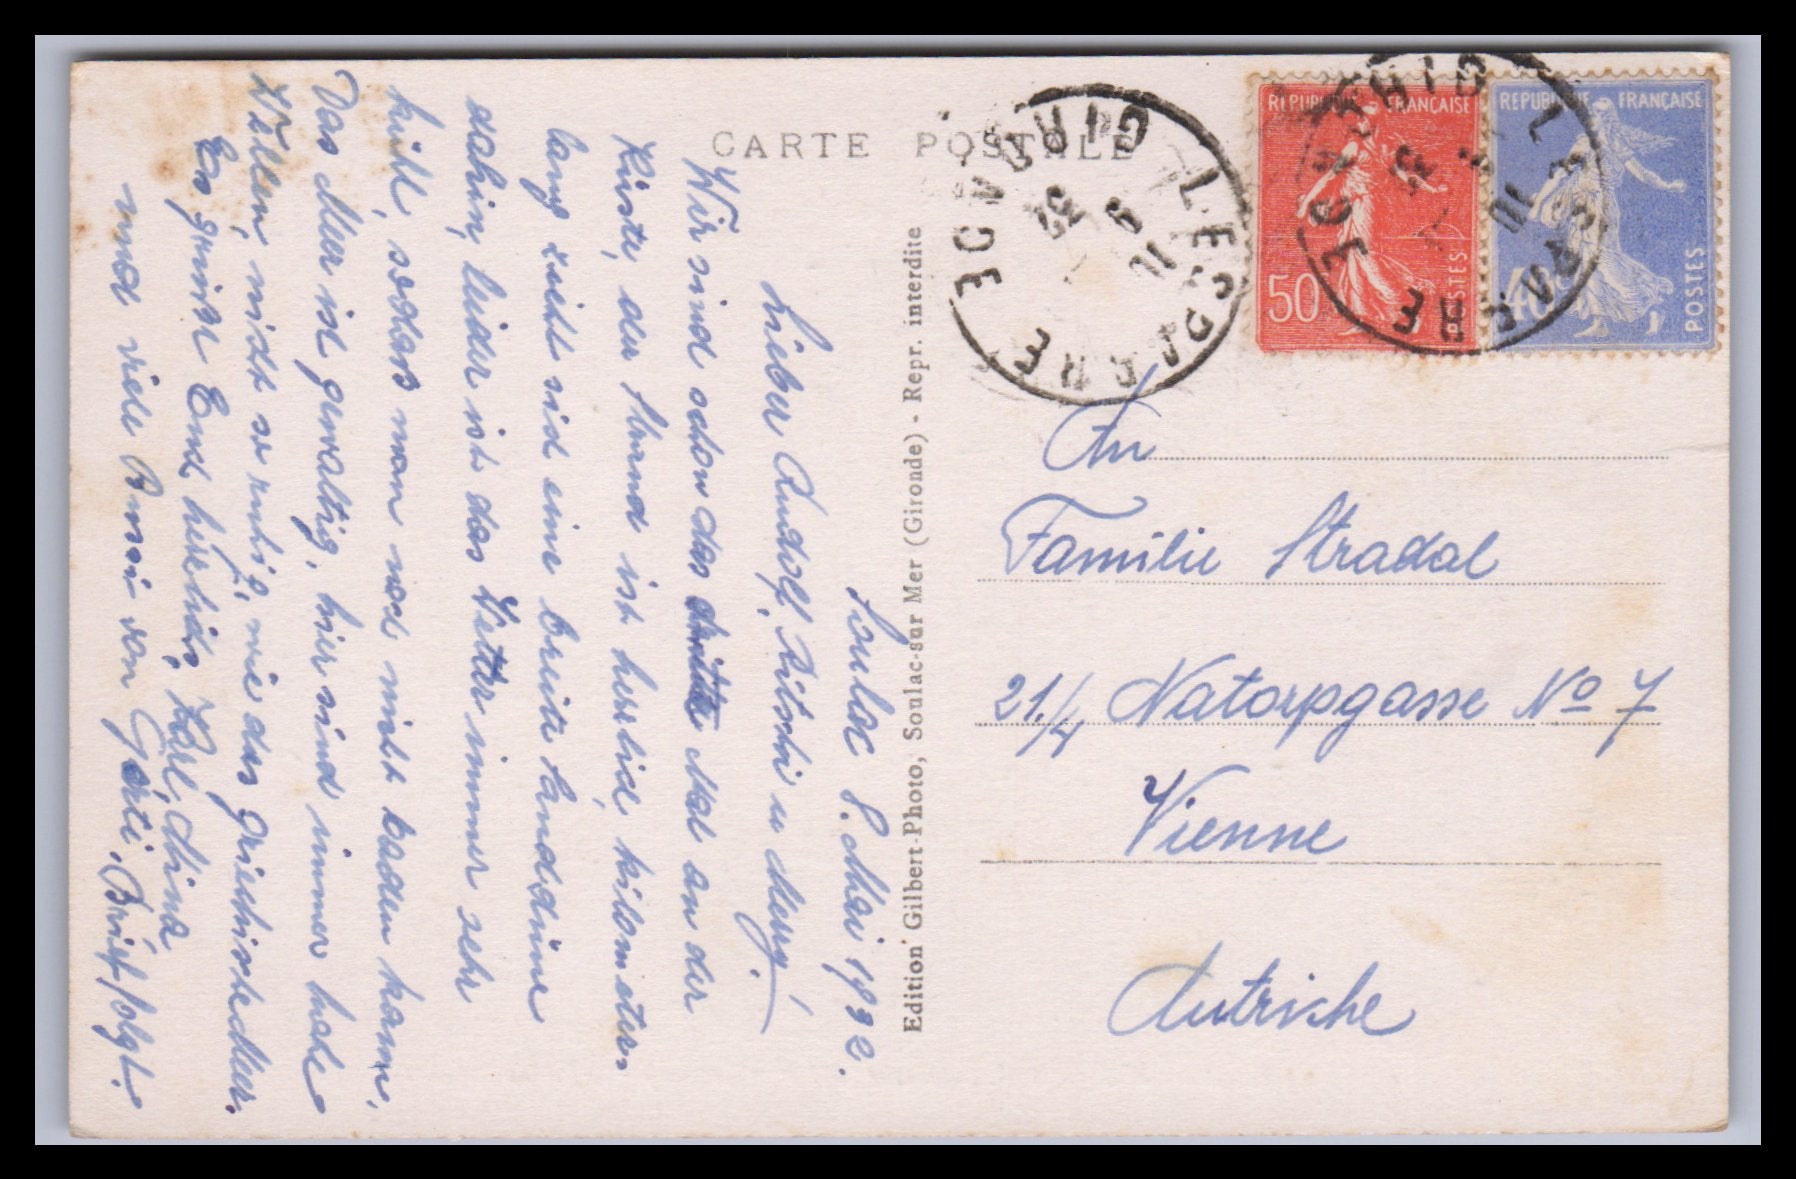 CARTE POSTALE
Soulac 8. Mai 1932.
Lieber Rudolf, u
Wir sind schon das dritte Mal an der
Küste, der Strand ist herrlich, kilometer-
lang zieht sich eine breite Sanddüne
dahin, leider ist das Wetter immer sehr
kühl, sodass man noch nicht baden kann.
Das Meer ist gewaltig, hier sind immer hohe
Wellen, nicht so ruhig, wie das griechische Meer.
Es grüsst Euch herzlich, Karl, Mina
und viele Bussi von Gerti, Brief folgt.
Edition Gilbert-Photo, Soulac-sur Mer (Gironde) - Repr. interdite
REPUBLIQUE FRANÇAISE
50c
POSTES
REPUBLIQUE FRANÇAISE
40c
POSTES
LESPARRE
GIRONDE
LESPARRE
GIRONDE
An
Familie Stradal
21./4 Natorpgasse No 7
Vienne
Autriche